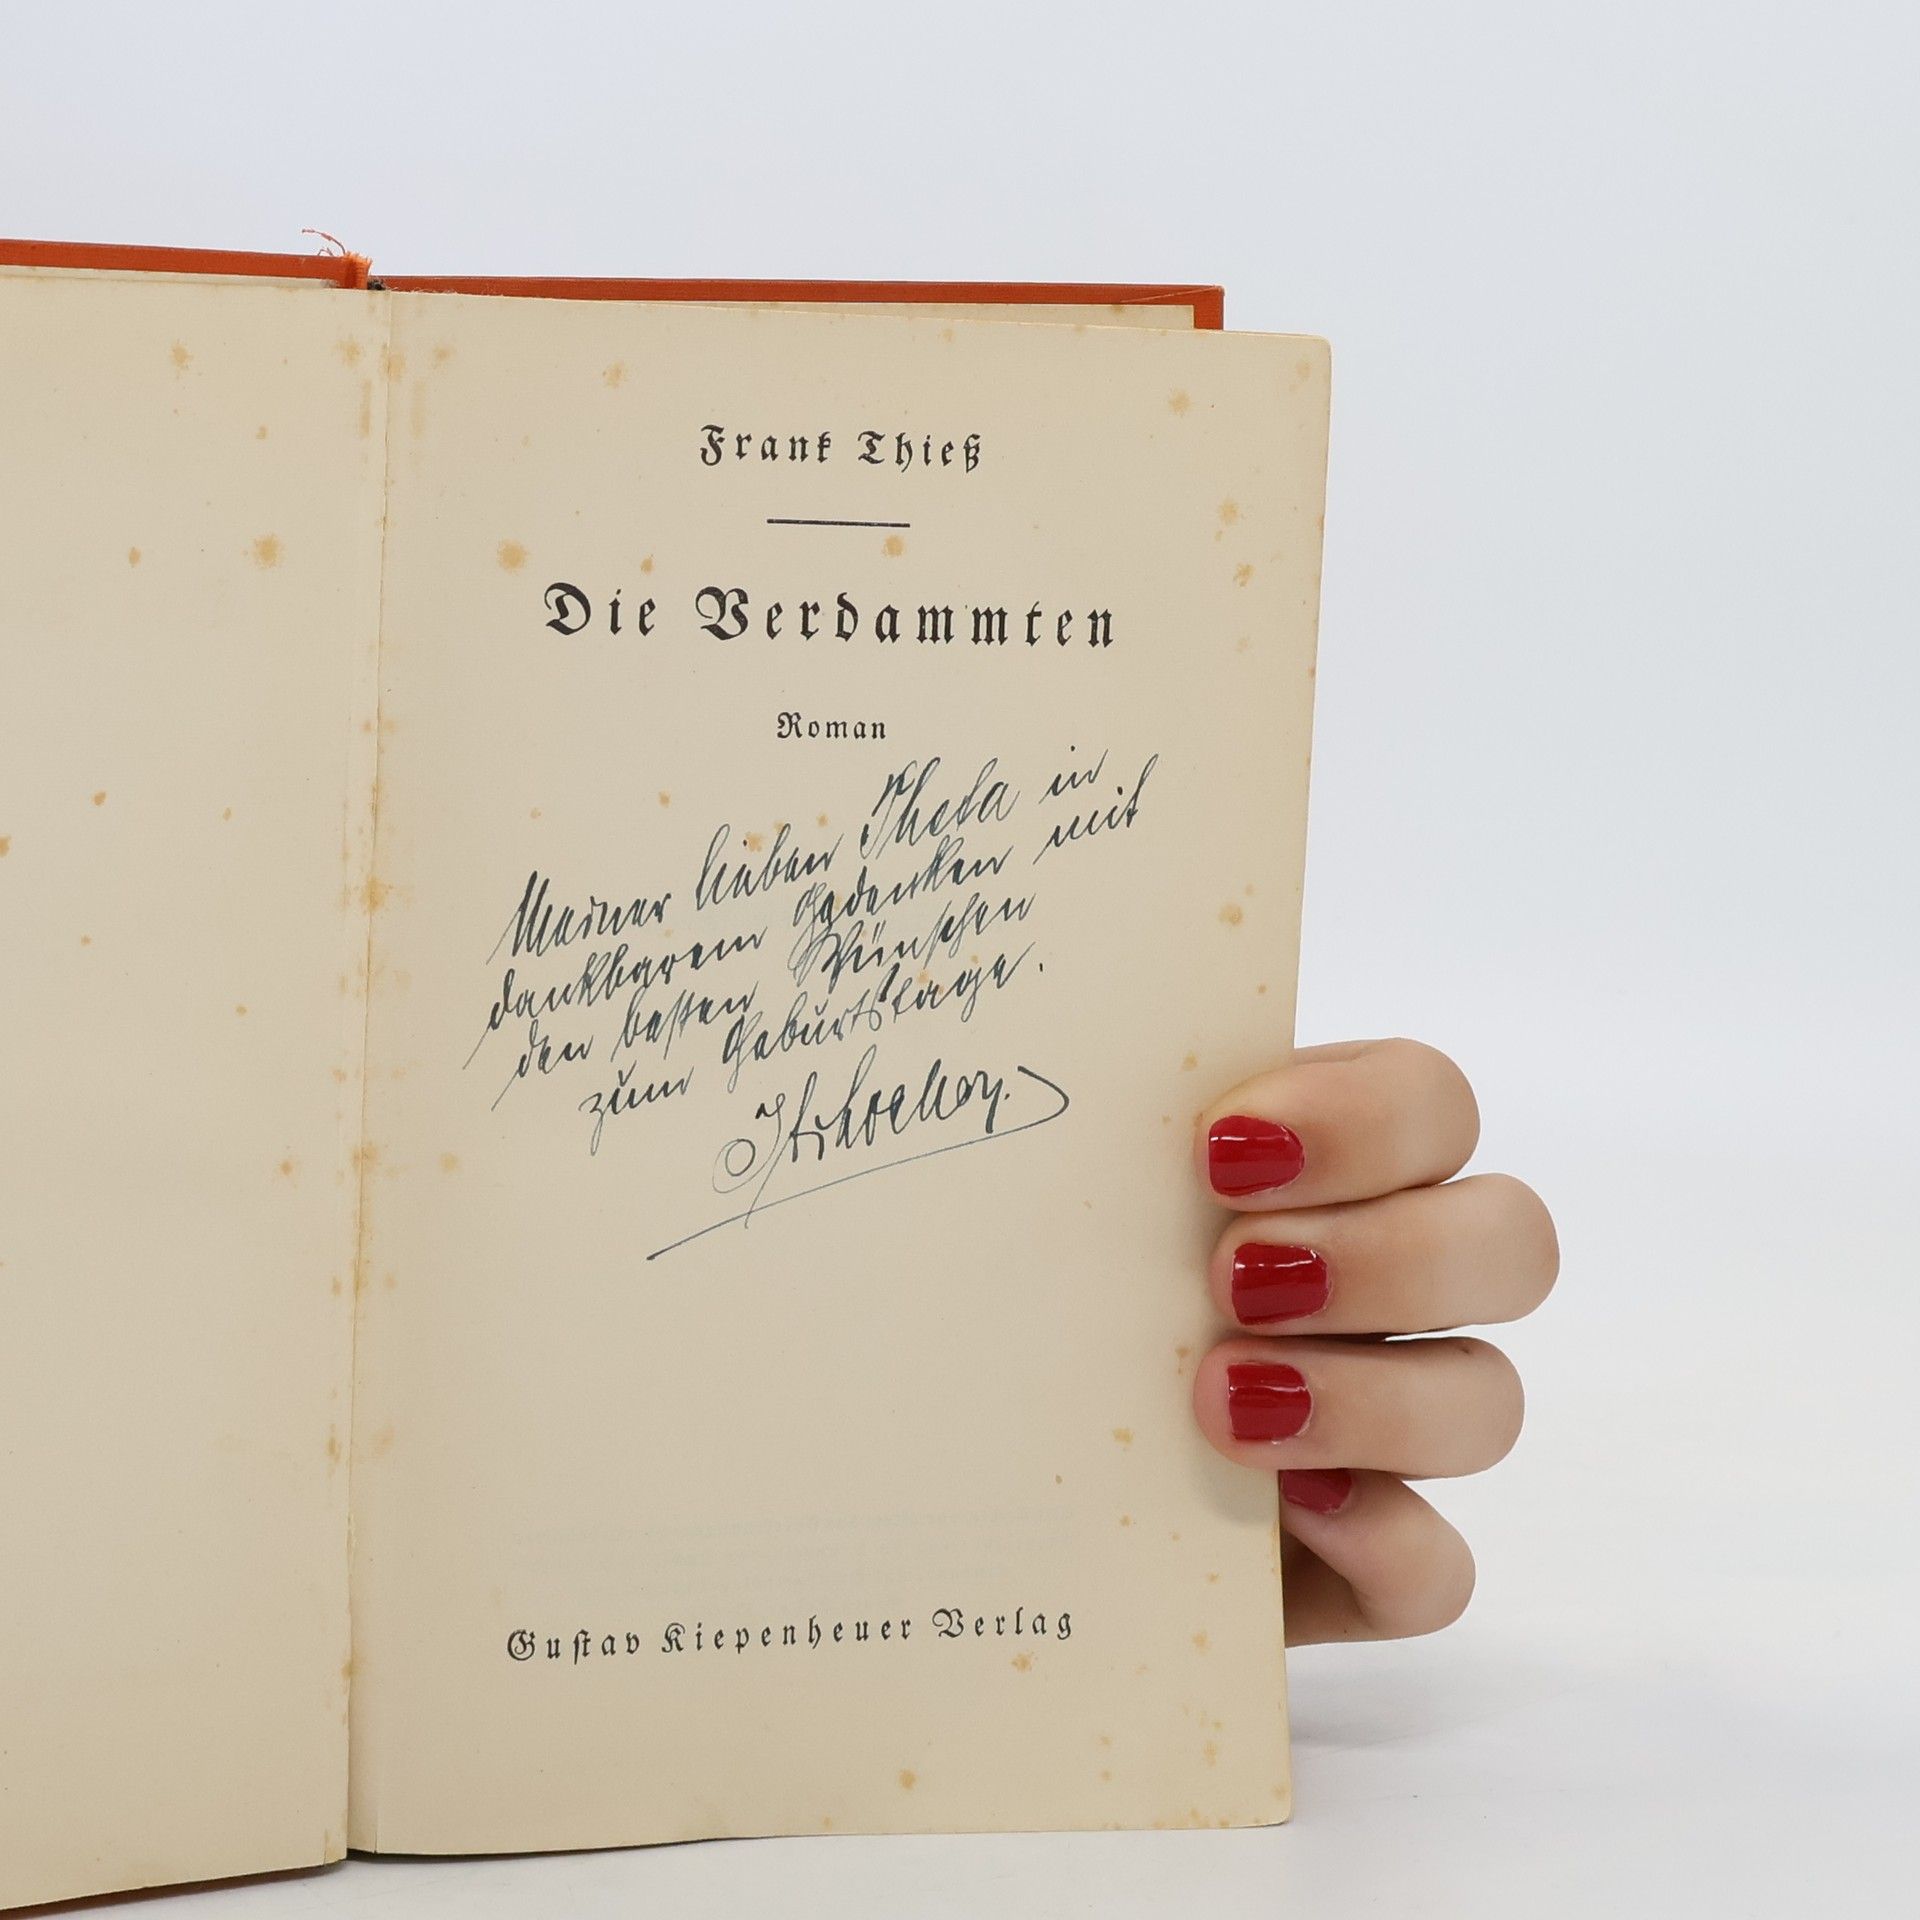 Frank Thieß
Die Verdammten
Roman
Meiner lieben Theda in
dankbarem Gedenken mit
den besten Wünschen
zum Geburtstage.
Gustav Kiepenheuer Verlag